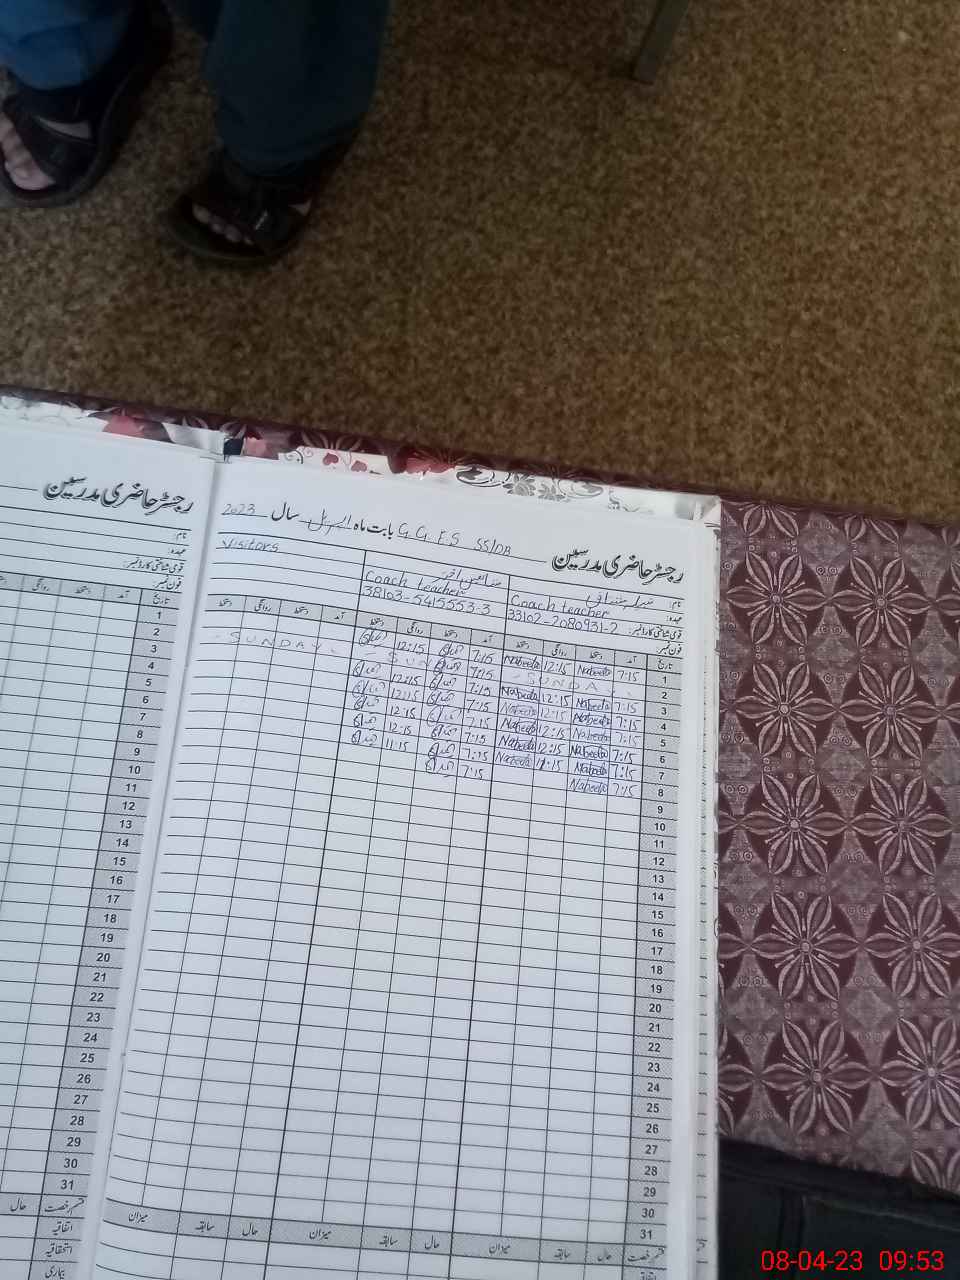 رجسٹر حاضری مدرسین
نام:
عہدہ:
قومی شناختی کارڈ نمبر:
فون نمبر:
تاریخ
آمد
دستخط
روانگی
1
2
3
4
5
6
7
8
9
10
11
12
13
14
15
16
17
18
19
20
21
22
23
24
25
26
27
28
29
30
31
قسم رخصت
حال
اتفاقیہ
استحقاقیہ
بیماری
رجسٹر حاضری مدرسین G.G.E.S SS/DB بابت ماہ اپریل سال 2023
نام:
Visitors
عہدہ: Coach teacher Coach teacher
قومی شناختی کارڈ نمبر: 33102-2080931-2 38103-5415553-3
فون نمبر:
تاریخ آمد دستخط روانگی دستخط آمد دستخط روانگی دستخط آمد دستخط روانگی دستخط
1 7:15 Nabeela 12:15 Nabeela 7:15 12:15
2 - SUNDAY - - SUN - SUNDAY -
3 7:15 Nabeela 12:15 Nabeela 7:15 12:15
4 7:15 Nabeela 12:15 Nabeela 7:15 12:15
5 7:15 Nabeela 12:15 Nabeela 7:15 12:15
6 7:15 Nabeela 12:15 Nabeela 7:15 12:15
7 7:15 Nabeela 11:15 Nabeela 7:15 11:15
8 7:15 Nabeela 7:15
9
10
11
12
13
14
15
16
17
18
19
20
21
22
23
24
25
26
27
28
29
30
31
قسم رخصت حال سابقہ میزان حال سابقہ میزان حال سابقہ میزان
اتفاقیہ
08-04-23 09:53